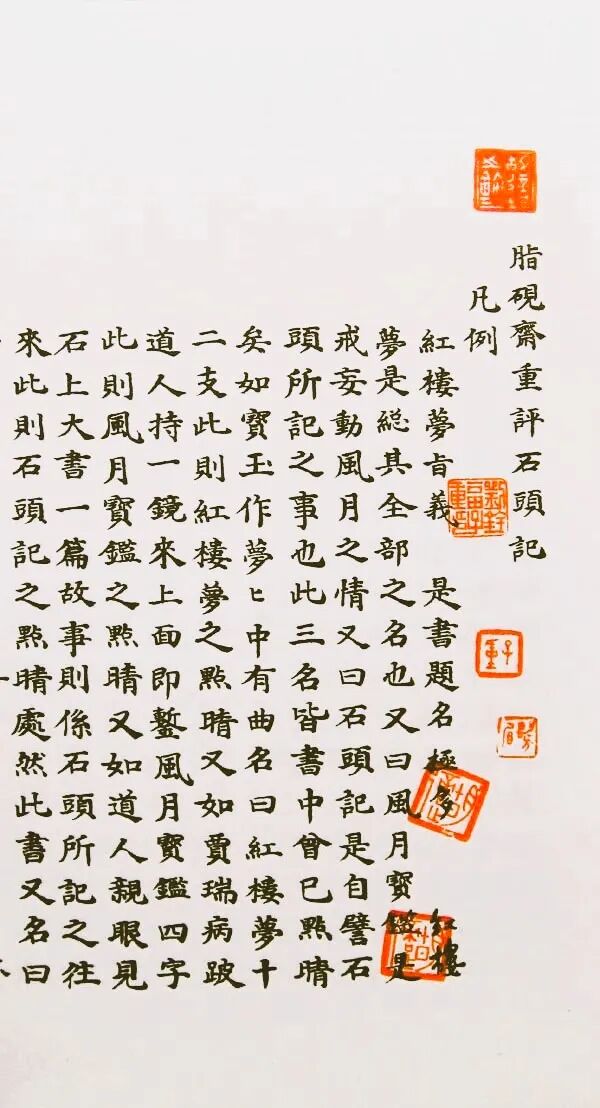 脂硯齋重評石頭記
凡例
紅樓夢旨義 是書題名極多 紅樓
夢是総其全部之名也又曰風月寶鑑是
戒妄動風月之情又曰石頭記是自譬石
頭所記之事也此三名皆書中曾已點晴
矣如寶玉作夢ヒ中有曲名曰紅樓夢十
二支此則紅樓夢之點晴又如賈瑞病跛
道人持一鏡來上面即鏨風月寶鑑四字
此則風月寶鑑之點晴又如道人親眼見
石上大書一篇故事則係石頭所記之往
來此則石頭記之點晴處然此書又名曰
子重
髣眉